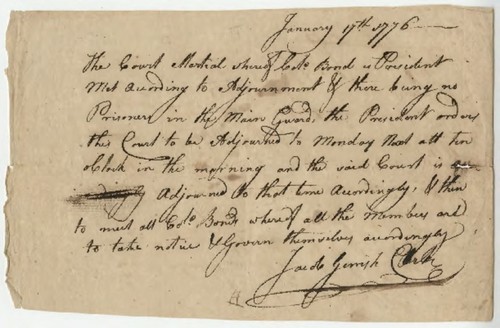 January 17th 1776
The Court Martial whereof Colo. Bond is President
Met according to Adjournment & there being no
Prisoners in the Main Guard, the President orders
the Court to be Adjourned to Monday Next att ten
oClock in the morning and the said Court is
Adjourned to that time Acordingly, & then
to meet all Colo. Bonds whereof all the Members are
to take notice & Govern themselves accordingly
Jacob Gerrish Clerk